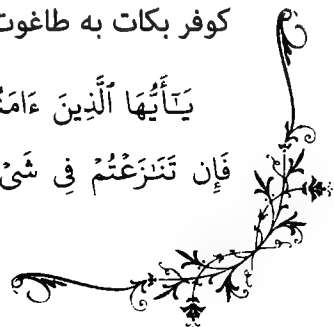 كوفر بكات به طاغوت
يَـٰٓأَيُّهَا ٱلَّذِينَ ءَامَنُ
فَإِن تَنَـٰزَعۡتُمۡ فِي شَيۡ